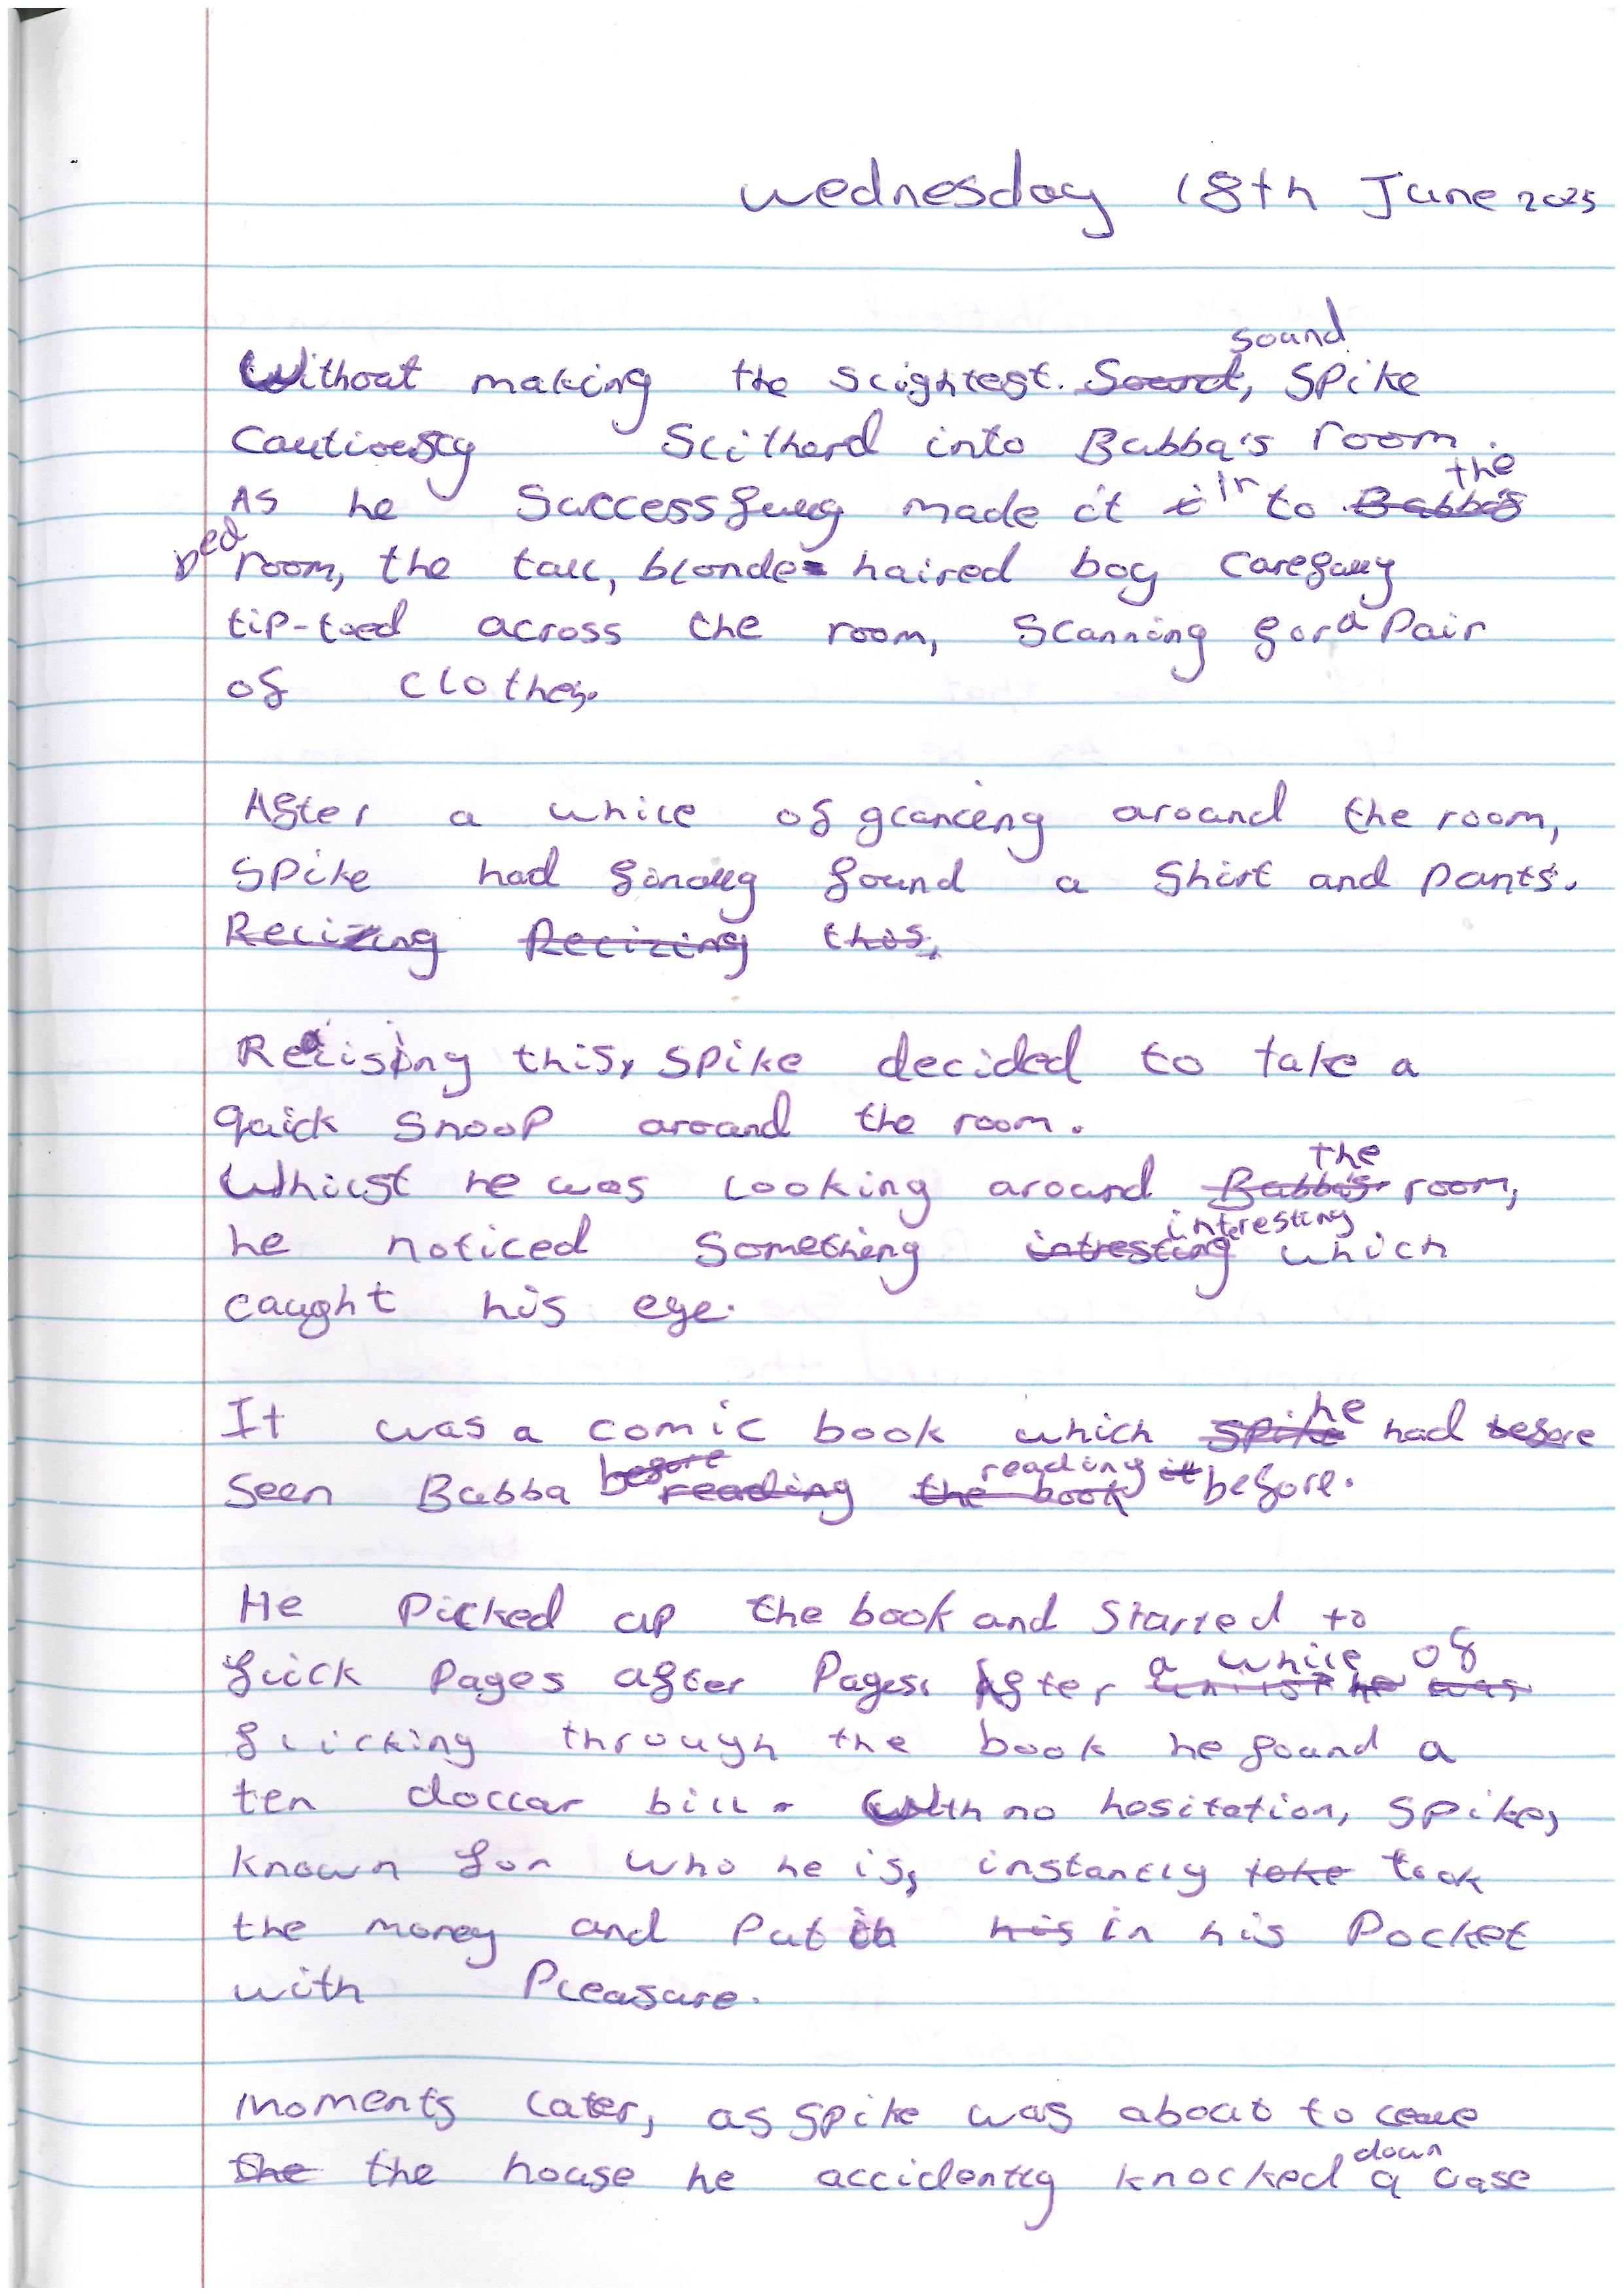 Wednesday 18th June 2025
Without making the slightest. ~~Sound~~ sound, Spike
Cautiously Slitherd into Bubba's room.
As he Successfully made it ~~i~~ in to ~~Bubba's~~ the
bed room, the tall, blonde-haired boy carefully
tip-toed across the room, scanning for a Pair
of clothes.
After a while of glanceng around the room,
Spike had finally found a Shirt and pants.
~~Relizing~~ ~~Relizing~~ ~~this,~~
Realising this, Spike decided to take a
quick snoop around the room.
Whilst he was looking around ~~Bubba's~~ the room,
he noticed Something ~~intresting~~ interesting which
caught his eye.
It was a comic book which ~~Spike~~ he had ~~before~~
seen Bubba ~~before~~ ~~reading~~ ~~the book~~ reading ~~it~~ before.
He Picked up the book and started to
flick Pages after Pages. After ~~whilst he was~~ a while of
flicking through the book he found a
ten dollar bill. With no hesitation, Spike,
known for who he is, instantly ~~toke~~ took
the money and Put it ~~his~~ in his Pocket
with Pleasure.
Moments later, as Spike was about to leave
~~The~~ the house he accidently knocked down a vase